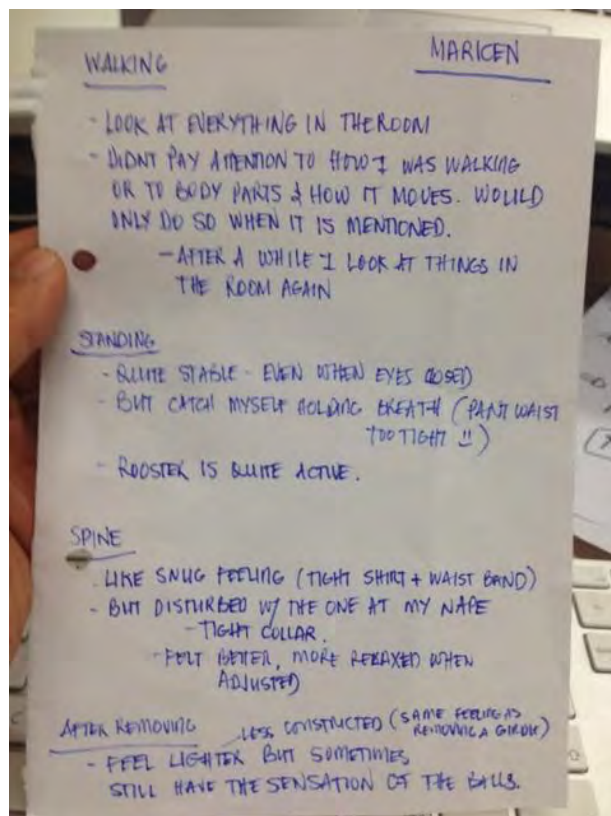 WALKING
MARICEN
- LOOK AT EVERYTHING IN THE ROOM
- DIDNT PAY ATTENTION TO HOW I WAS WALKING
OR TO BODY PARTS & HOW IT MOVES. WOULD
ONLY DO SO WHEN IT IS MENTIONED.
- AFTER A WHILE I LOOK AT THINGS IN
THE ROOM AGAIN
STANDING
- QUITE STABLE - EVEN WHEN EYES CLOSED
- BUT CATCH MYSELF HOLDING BREATH (PANT WAIST
TOO TIGHT !!)
- ROOSTER IS QUITE ACTIVE.
SPINE
- LIKE SNUG FEELING (TIGHT SHIRT + WAIST BAND)
- BUT DISTURBED W/ THE ONE AT MY NAPE
- TIGHT COLLAR.
- FELT BETTER, MORE RELAXED WHEN
ADJUSTED
AFTER REMOVING
LESS CONSTRICTED (SAME FEELING AS
REMOVING A GIRDLE)
- FEEL LIGHTER BUT SOMETIMES
STILL HAVE THE SENSATION OF THE BALLS.